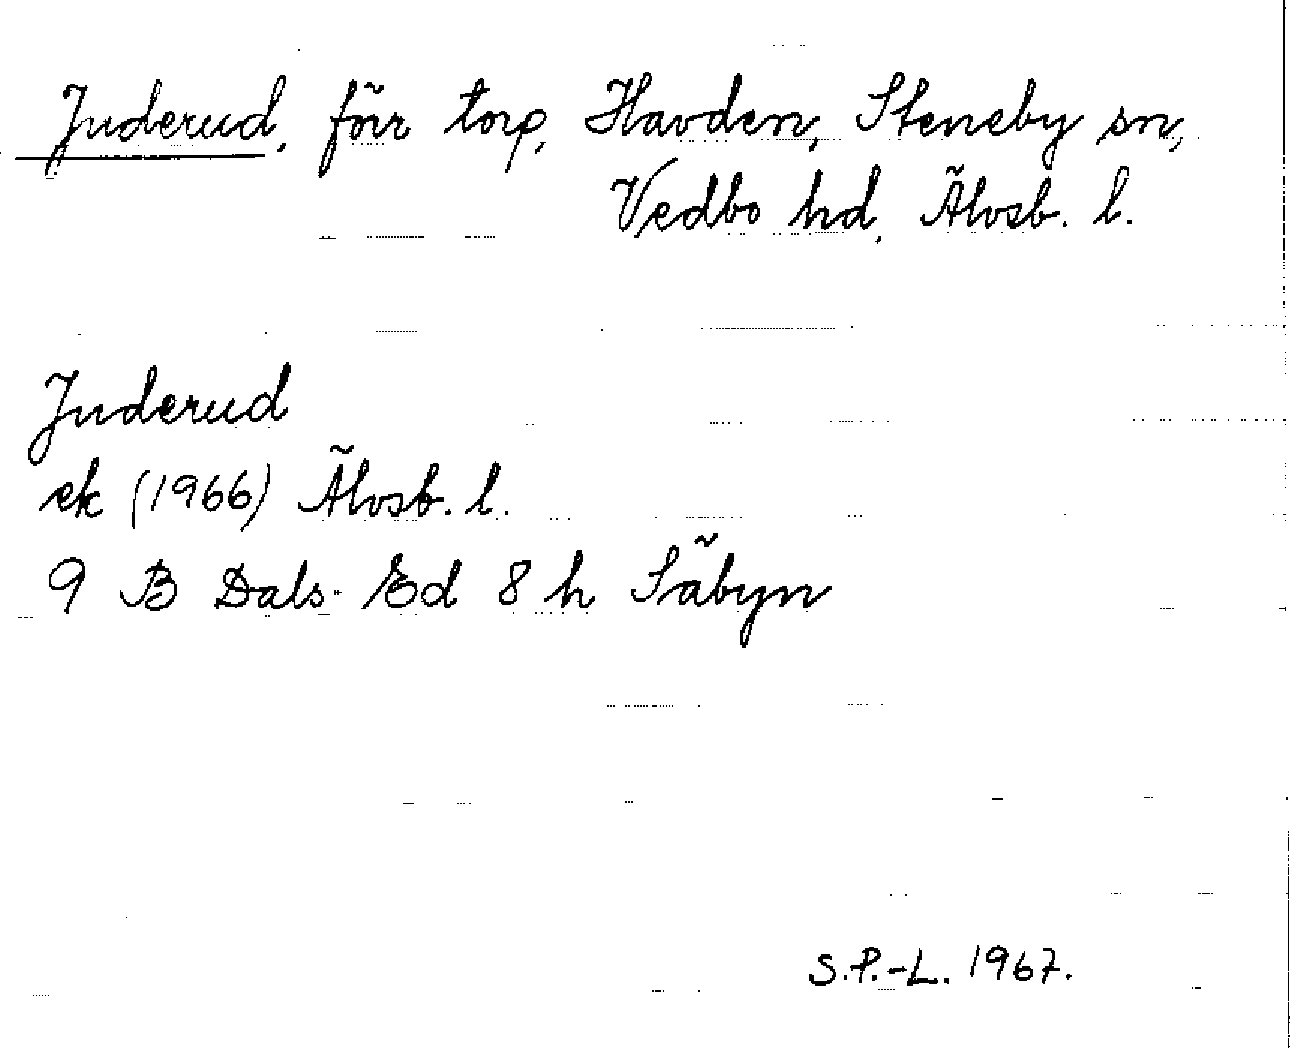 Juderud, förr torp, Havden, Steneby sn,
Vedbo hd, Älvsb. l.
Juderud
ek (1966) Älvsb. l.
9 B Dals-Ed 8 h Säbyn
S.P.-L. 1967.